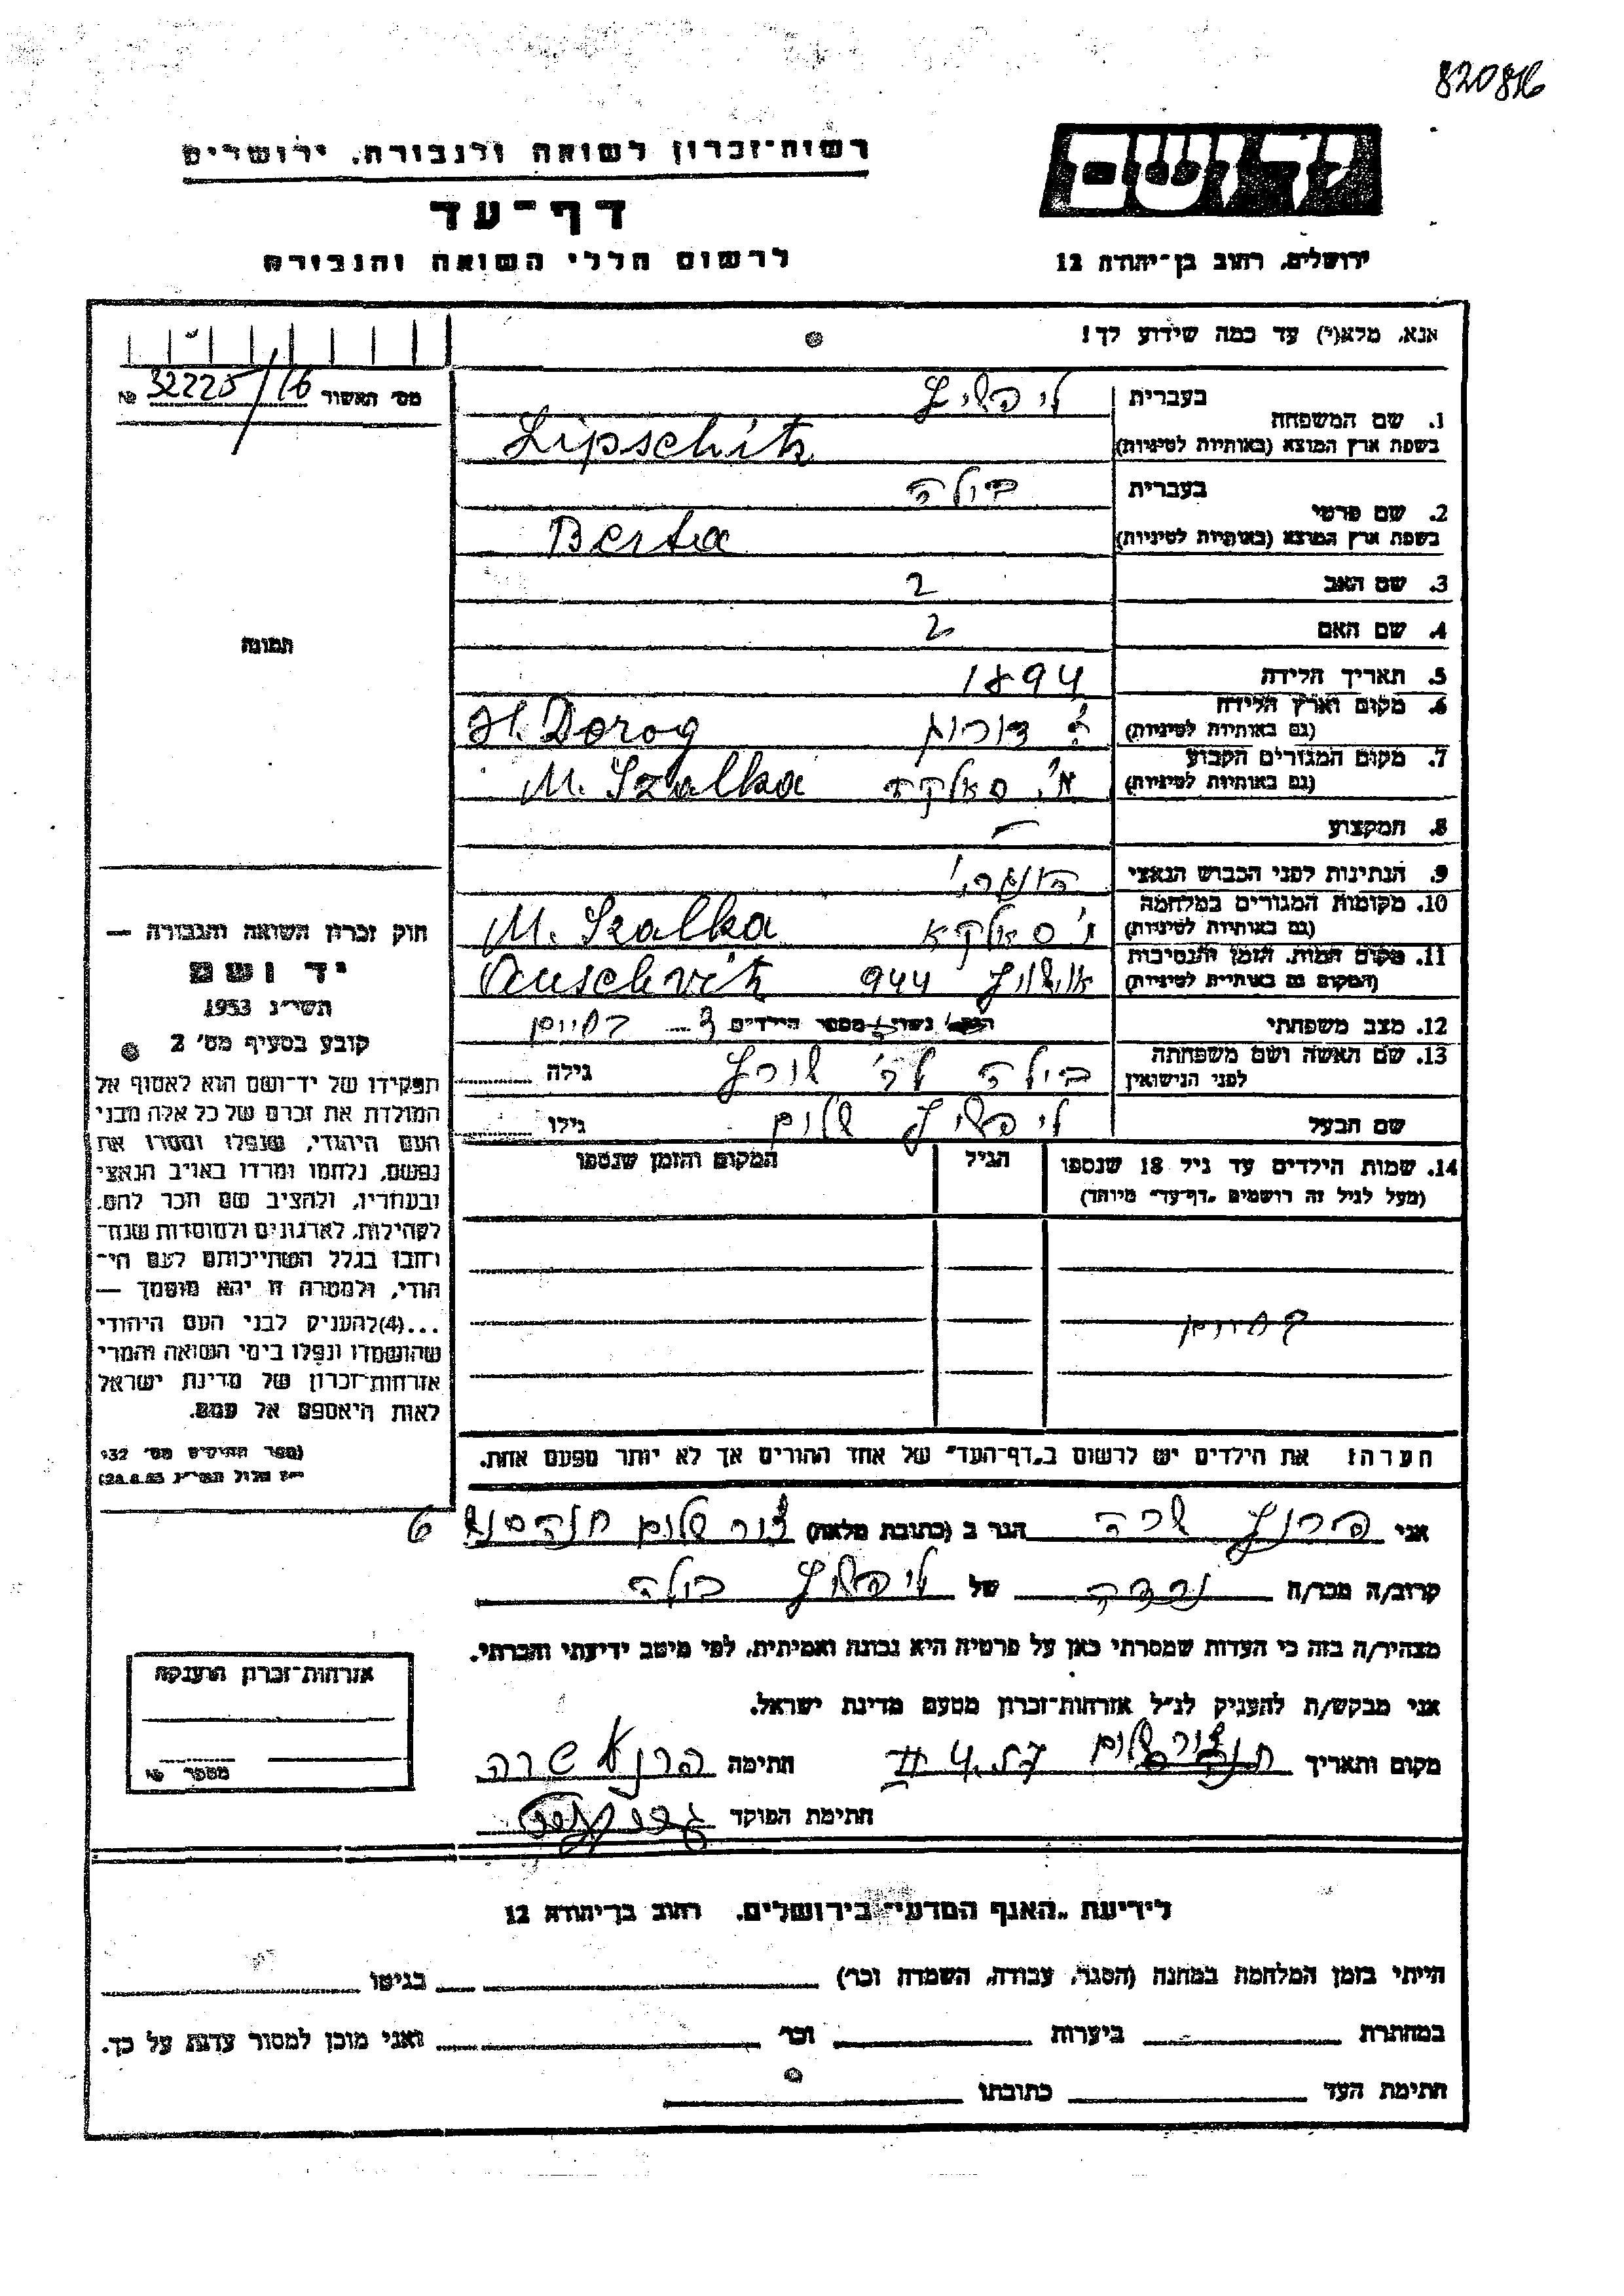 820816
יד ושם
רשות-זכרון לשואה ולגבורה, ירושלים
דף-עד
לרשום חללי השואה והגבורה
ירושלים, רחוב בן-יהודה 12
אנא, מלא(י) עד כמה שידוע לך!
מס' האשור 32225/16 №
1. שם המשפחה בעברית ליפשיץ
בשפת ארץ המוצא (באותיות לטיניות) Lipschitz
2. שם פרטי בעברית בילה
בשפת ארץ המוצא (באותיות לטיניות) Berta
3. שם האב
4. שם האם
5. תאריך הלידה 1894
6. מקום וארץ הלידה (גם באותיות לטיניות) ה. דורוג H. Dorog
7. מקום המגורים הקבוע (גם באותיות לטיניות) מ. סאלקה M. Szalka
8. המקצוע —
9. הנתינות לפני הכבוש הנאצי הונגרי
10. מקומות המגורים במלחמה (גם באותיות לטיניות) סאלקא M. Szalka
11. מקום המות, הזמן והנסיבות (המקום גם באותיות לטיניות) אושויץ 944 Auschvitz
12. מצב משפחתי נשוי מספר הילדים 3 בחיים
13. שם האשה ושם משפחתה לפני הנישואין בילה לב' שורץ גילה
שם הבעל ליפשיץ שלום גילו
14. שמות הילדים עד גיל 18 שנספו (מעל לגיל זה רושמים "דף-עד" מיוחד) הגיל המקום והזמן שנספו
בחיים
הערה: את הילדים יש לרשום ב"דף-העד" של אחד ההורים אך לא יותר מפעם אחת.
תמונה
חוק זכרון השואה והגבורה —
יד ושם
תשי"ג 1953
קובע בסעיף מס' 2
תפקידו של יד-ושם הוא לאסוף אל
המולדת את זכרם של כל אלה מבני
העם היהודי, שנפלו ומסרו את
נפשם, נלחמו ומרדו באויב הנאצי
ובעוזריו, ולהציב שם וזכר להם,
לקהילות, לארגונים ולמוסדות שנח-
רחבו בגלל השתייכותם לעם הי-
הודי, ולמטרה זו יהא מוסמך —
...(4) להעניק לבני העם היהודי
שהושמדו ונפלו בימי השואה והמרי
אזרחות-זכרון של מדינת ישראל
לאות היאספם אל עמם.
(ספר החוקים מס' 132
י"ז אלול תשי"ג 28.8.53)
אני שרה הגר ב (כתובת מלאה) צור שלום 6
קרוב/ה מכר/ה נכדה של ליפשיץ בילה
מצהיר/ה בזה כי העדות שמסרתי כאן על פרטיה היא נכונה ואמיתית, לפי מיטב ידיעתי והכרתי.
אני מבקש/ת להעניק לנ"ל אזרחות-זכרון מטעם מדינת ישראל.
מקום ותאריך צור שלום חתימה שרה
חתימת הפוקד
אזרחות-זכרון הוענקה
מספר №
לידיעת "האגף המדעי" בירושלים, רחוב בן-יהודה 12
הייתי בזמן המלחמה במחנה (הסגר, עבודה, השמדה וכו') בגיטו
במחתרת ביערות וכו' ואני מוכן למסור עדות על כך.
חתימת העד כתובתו